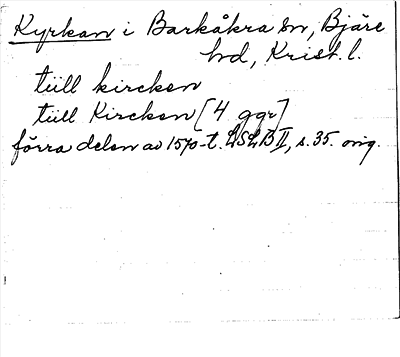 Kyrkan i Barkåkra sn, Bjäre
hd, Krist. l.
tiill kircken
tiill Kircken [4 ggr]
förra delen av 1570-t. LSLB II, s. 35. orig.